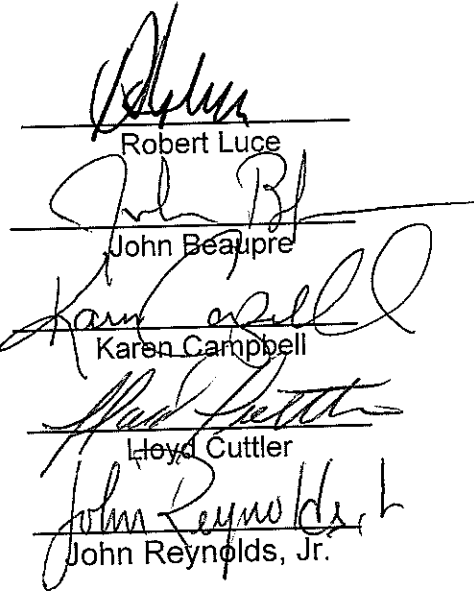 Robert Luce
John B
John Beaupre
Karen Campbell
Karen Campbell
Lloyd Cuttler
John Reynolds, Jr
John Reynolds, Jr.